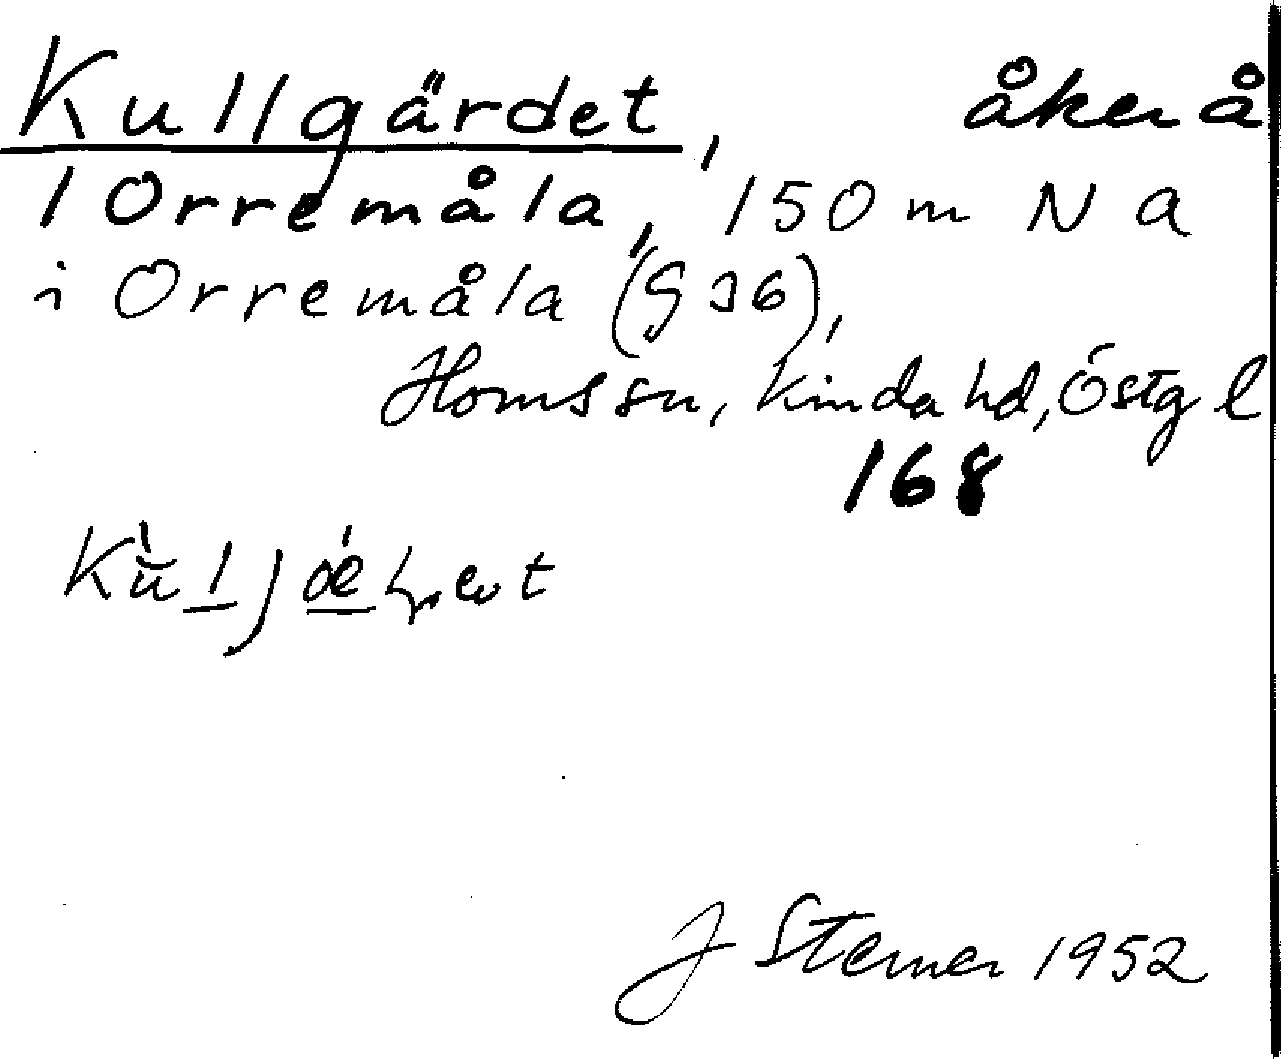 Kullgärdet, åker å
1 Orremåla, 150 m N a
i Orremåla (G 36),
Horns sn, Kinda hd, Östg l
168
J Sterner 1952